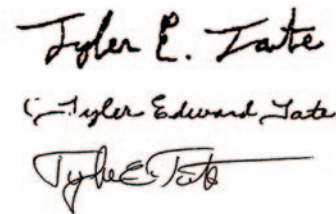 Tyler E. Tate
(Tyler Edward Tate
Tyler E. Tate